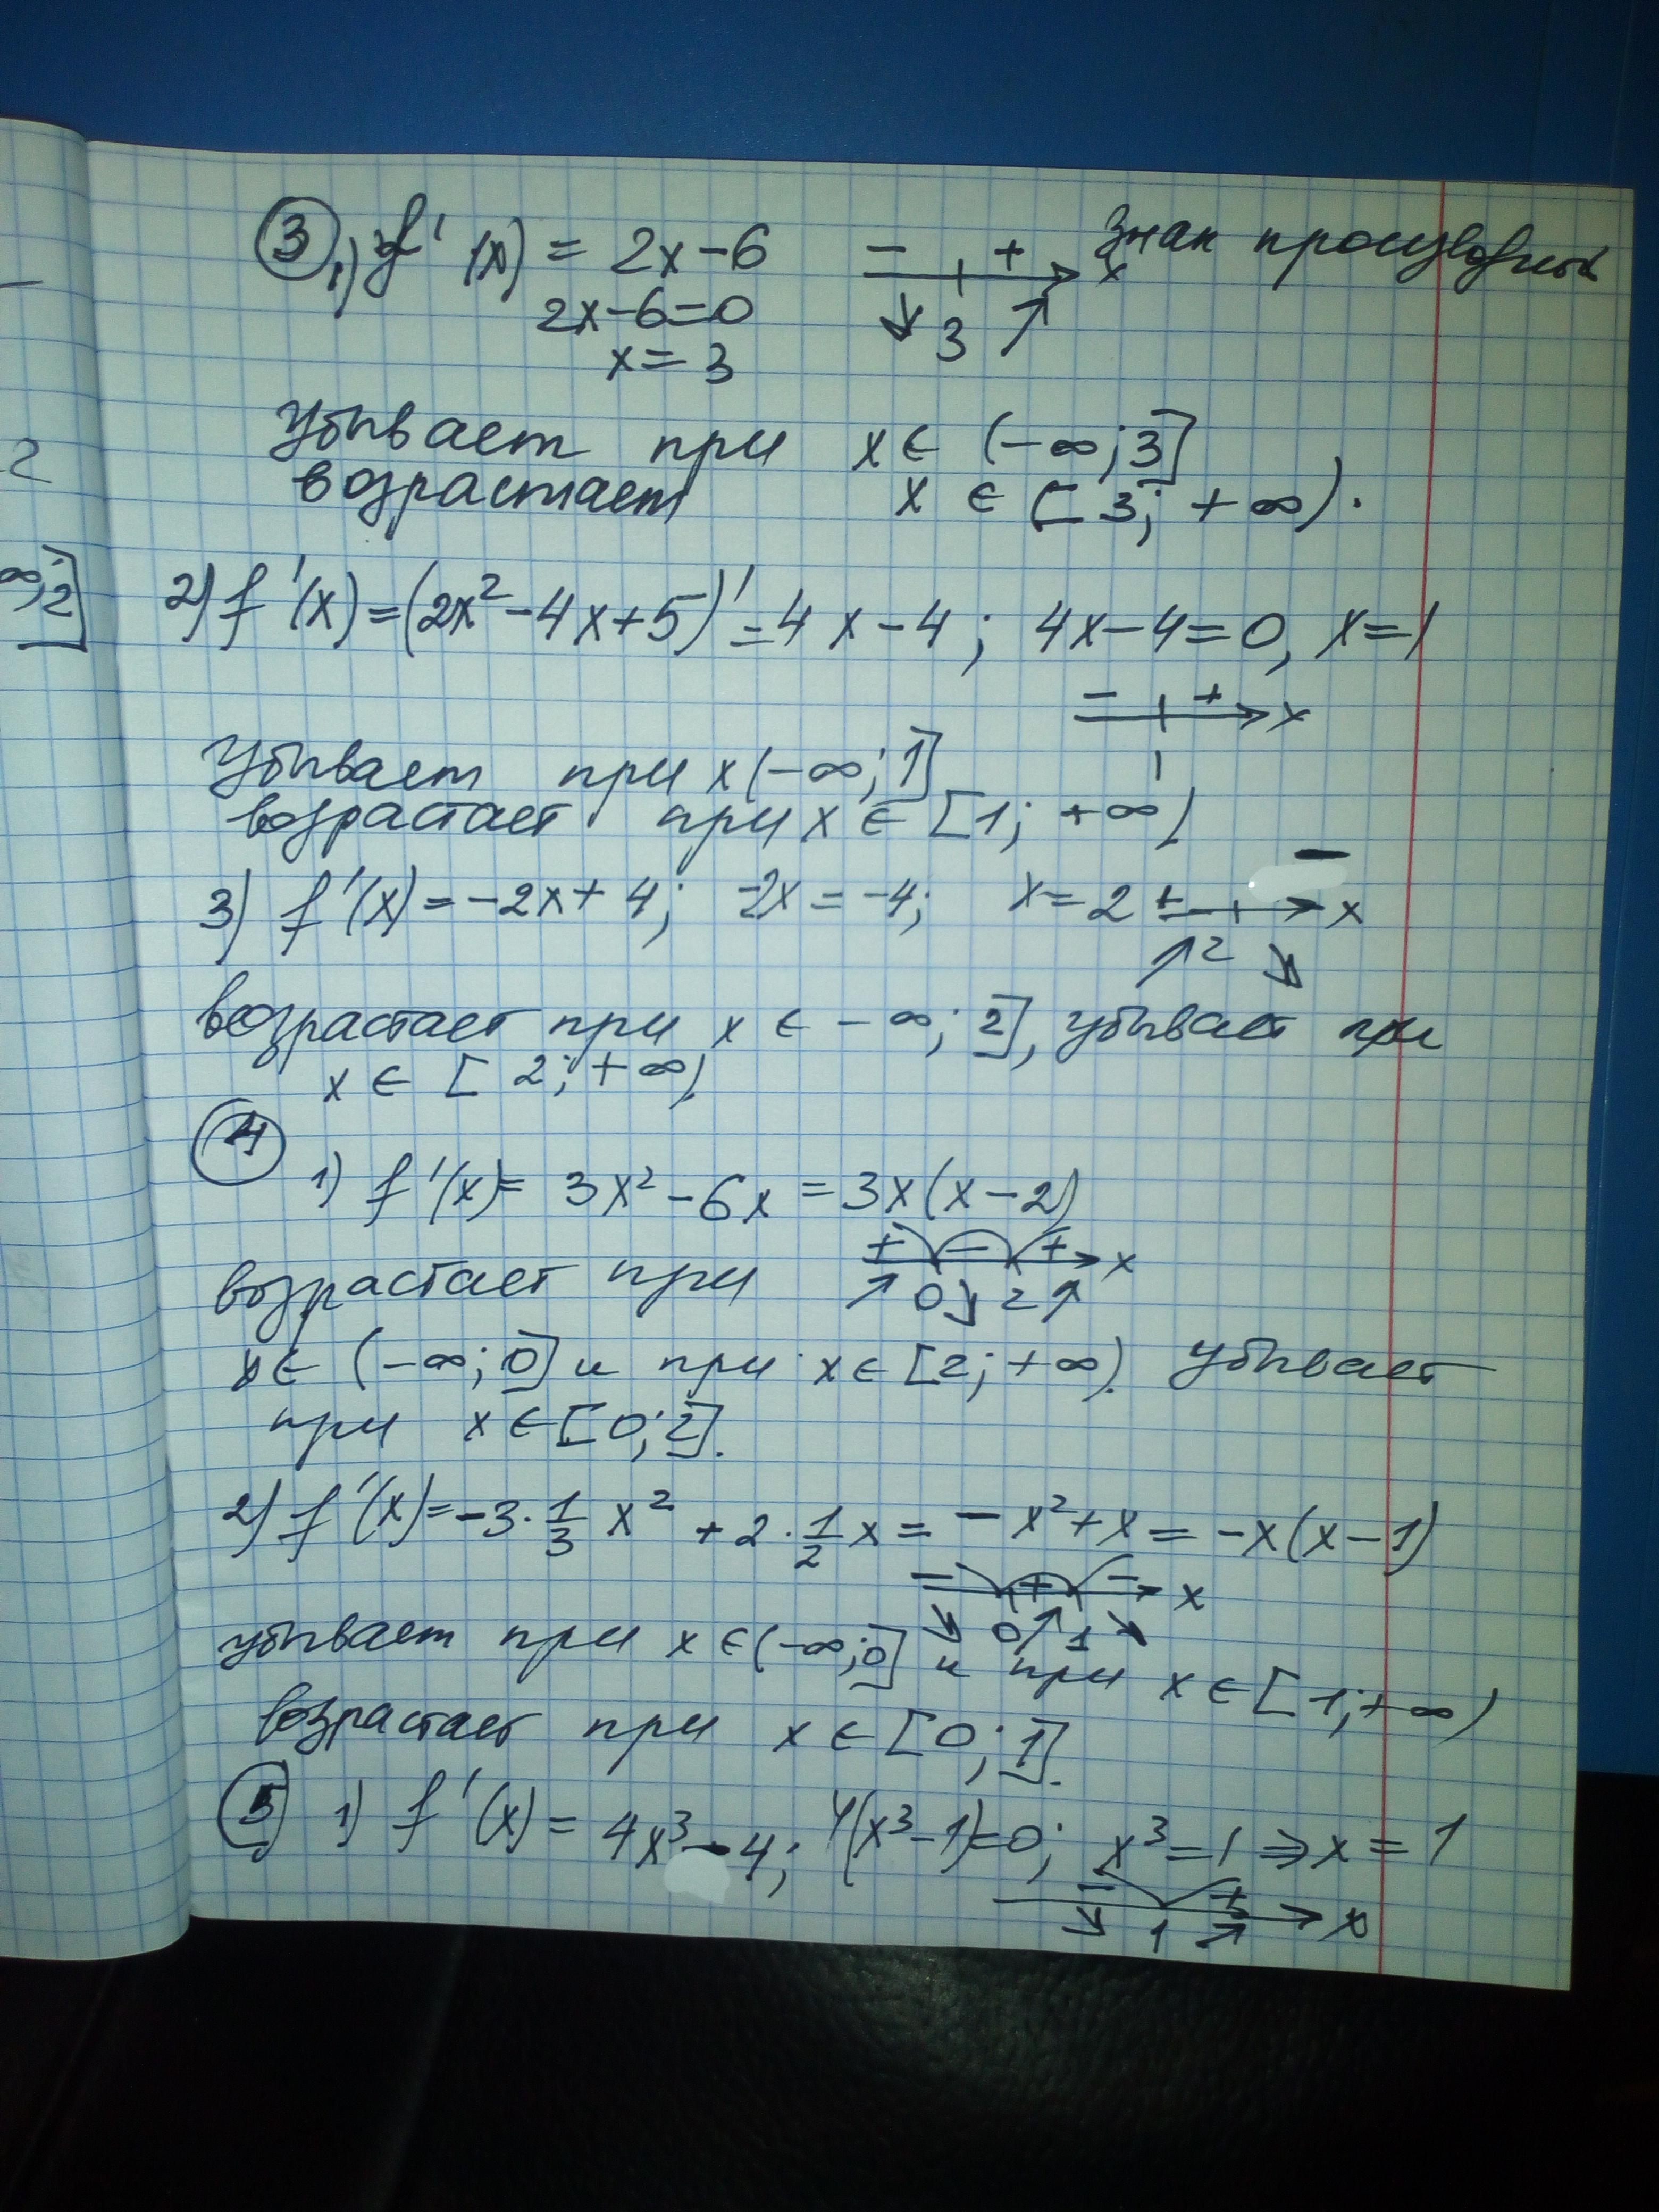 ③ 1) f'(x) = 2x-6  - + x  Знак производных
2x-6=0  ↘ 3 ↗
x = 3
Убывает при x ∈ (-∞; 3]
возрастает x ∈ [3; +∞).
∞; 2]
2
2) f'(x) = (2x²-4x+5)' = 4x-4; 4x-4=0, x=1
- + x
1
Убывает при x(-∞; 1]
возрастает при x ∈ [1; +∞)
3) f'(x) = -2x+4; -2x = -4; x = 2  + - x
↗ 2 ↘
возрастает при x ∈ -∞; 2], убывает при
x ∈ [2; +∞)
④
1) f'(x) = 3x² - 6x = 3x(x-2)
+ - + x
возрастает при  ↗ 0 ↘ 2 ↗
x ∈ (-∞; 0] и при x ∈ [2; +∞). Убывает
при x ∈ [0; 2].
2) f'(x) = -3·1/3 x² + 2·1/2 x = -x²+x = -x(x-1)
- + - x
↘ 0 ↗ 1 ↘
убывает при x ∈ (-∞; 0] и при x ∈ [1; +∞)
возрастает при x ∈ [0; 1].
⑤ 1) f'(x) = 4x³-4; 4(x³-1)=0; x³=1 ⇒ x = 1
- + x
↘ 1 ↗